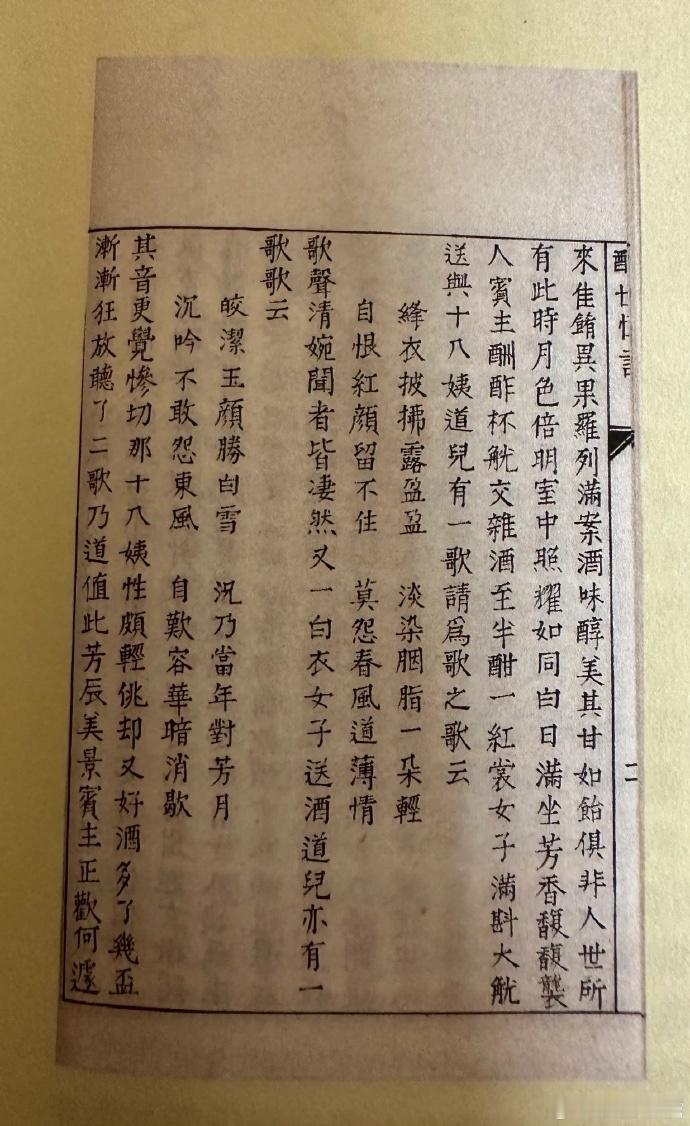 來佳餚異果羅列滿案酒味醇美其甘如飴俱非人世所
有此時月色倍明室中照耀如同白日滿坐芳香馥馥襲
人賓主酬酢杯觥交雜酒至半酣一紅裳女子滿斟大觥
送與十八姨道兒有一歌請爲歌之歌云
絳衣披拂露盈盈 淡染胭脂一朵輕
自恨紅顏留不住 莫怨春風道薄情
歌聲清婉聞者皆凄然又一白衣女子送酒道兒亦有一
歌歌云
皎潔玉顏勝白雪 況乃當年對芳月
沉吟不敢怨東風 自歎容華暗消歇
其音更覺慘切那十八姨性頗輕佻却又好酒多了幾盃
漸漸狂放聽了二歌乃道值此芳辰美景賓主正歡何遽
二